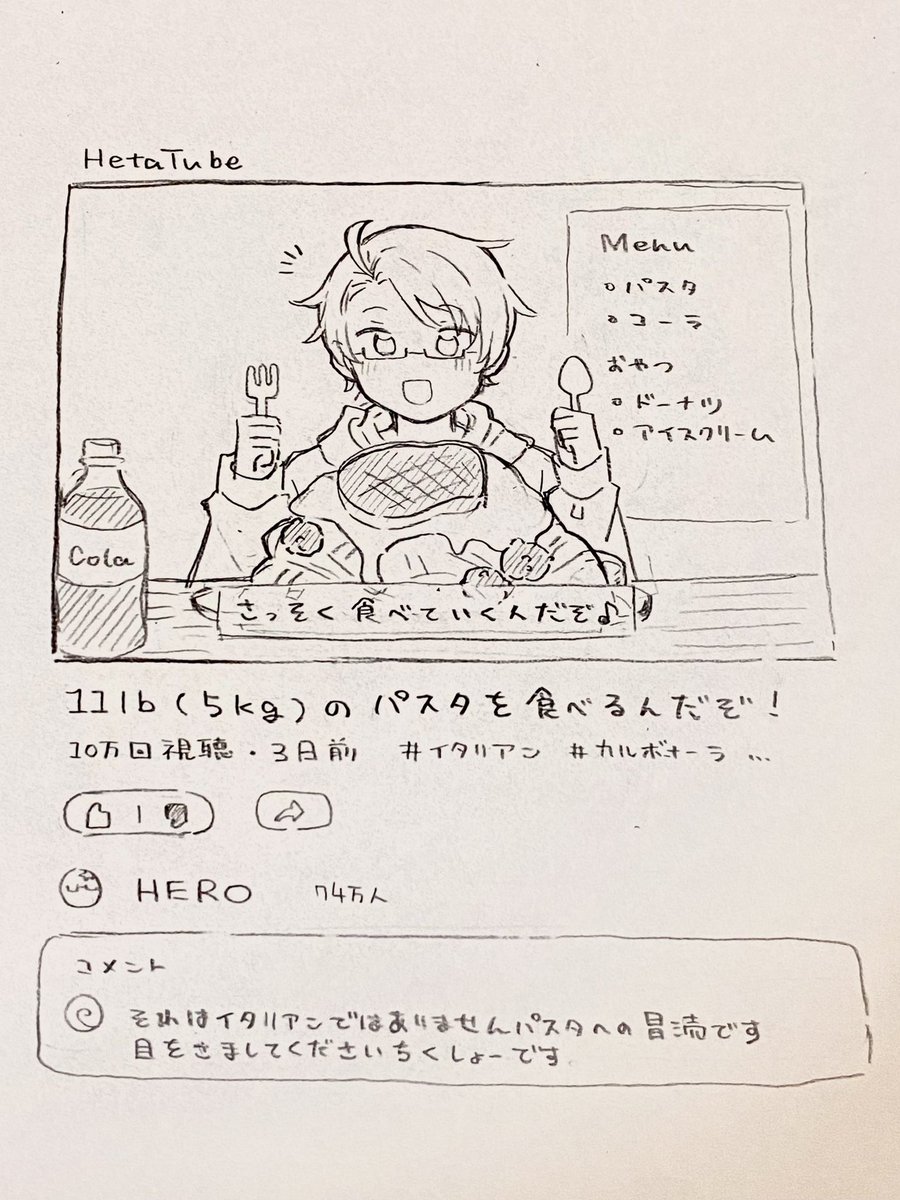 HetaTube
Menu
・パスタ
・コーラ
おやつ
・ドーナツ
・アイスクリーム
Cola
さっそく食べていくんだぞ♪
11lb(5kg)のパスタを食べるんだぞ!
10万回視聴・3日前 #イタリアン #カルボナーラ …
HERO 74万人
コメント
それはイタリアンではありませんパスタへの冒涜です
目をさましてくださいちくしょーです